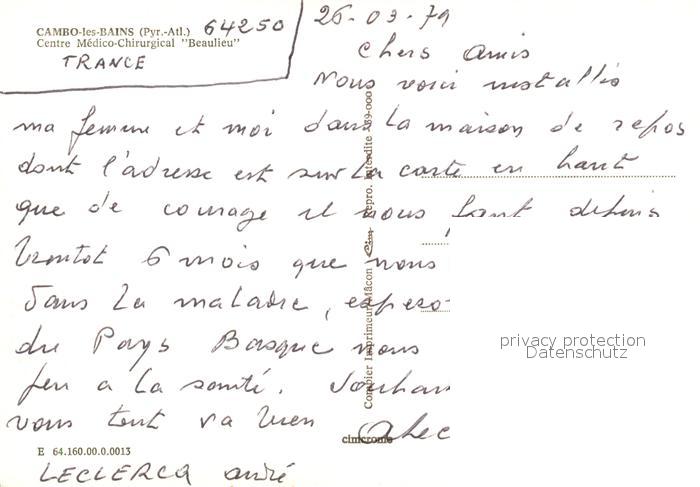 CAMBO-les-BAINS (Pyr.-Atl.) 64250
Centre Médico-Chirurgical "Beaulieu"
FRANCE
26-03-79
Chers amis
Nous voici installés
ma femme et moi dans la maison de repos
dont l'adresse est sur la carte en haut
que de courage il nous faut depuis
bientot 6 mois que nous
dans la maladie, espero
du Pays Basque nous
peu a la santé. Souhai
vous tout va bien Avec
LECLERCQ andré
E 64.160.00.0.0013
Combier Imprimeur Mâcon Cim Repro. interdite
cimcrome
privacy protection
Datenschutz